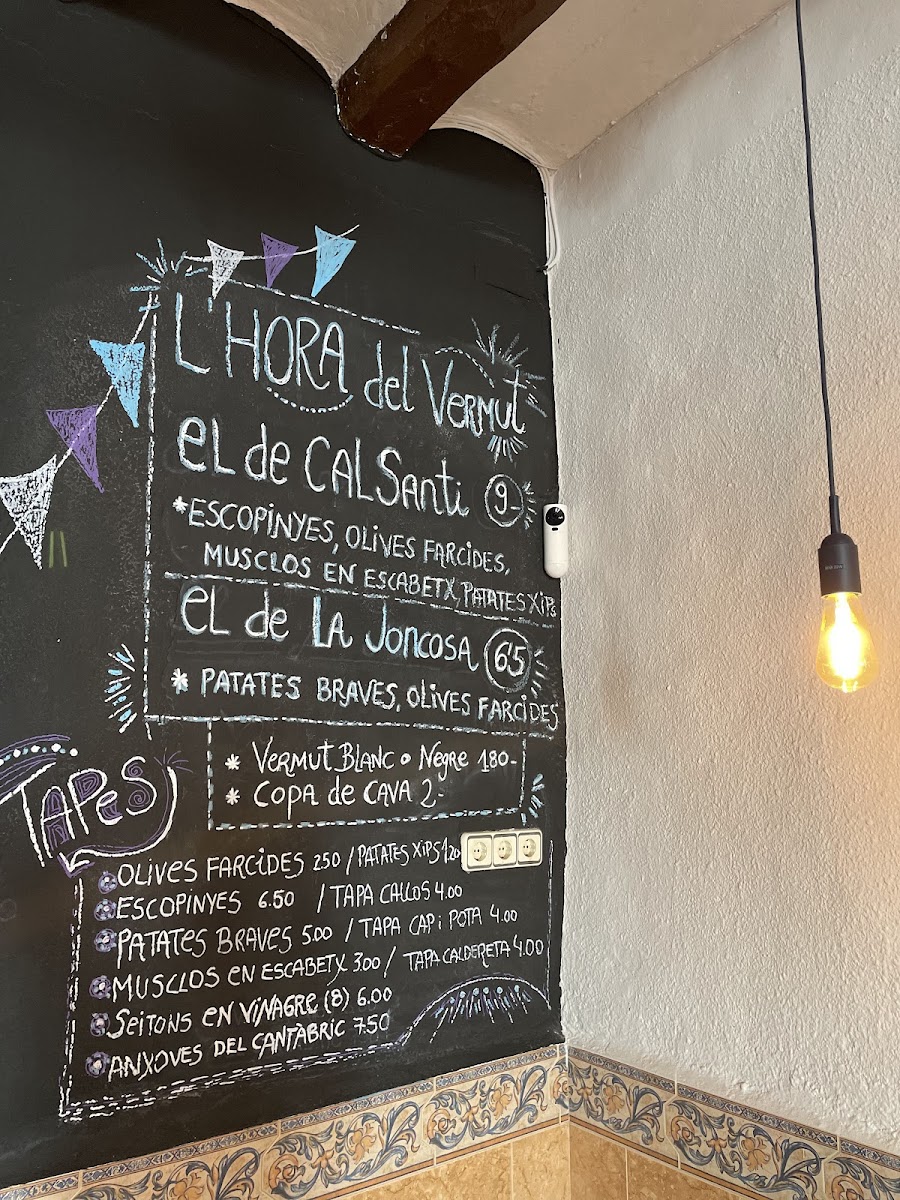 L'HORA del Vermut
el de CAL Santi 9-
*ESCOPINYES, OLIVES FARCIDES,
MUSCLOS EN ESCABETX, PATATES XIPS
el de LA JONCOSA 6'5
* PATATES BRAVES, OLIVES FARCIDES
* VERMUT BLANC o Negre 180-
* COPA de CAVA 2-
TAPes
OLIVES FARCIDES 250 / PATATES XIPS 120
ESCOPINYES 6.50 / TAPA CALLOS 4.00
PATATES BRAVES 5.00 / TAPA CAP i POTA 4.00
MUSCLOS EN ESCABETX 3.00 / TAPA CALDERETA 4.00
SEITONS EN VINAGRE (8) 6.00
ANXOVES DEL CANTÀBRIC 7.50